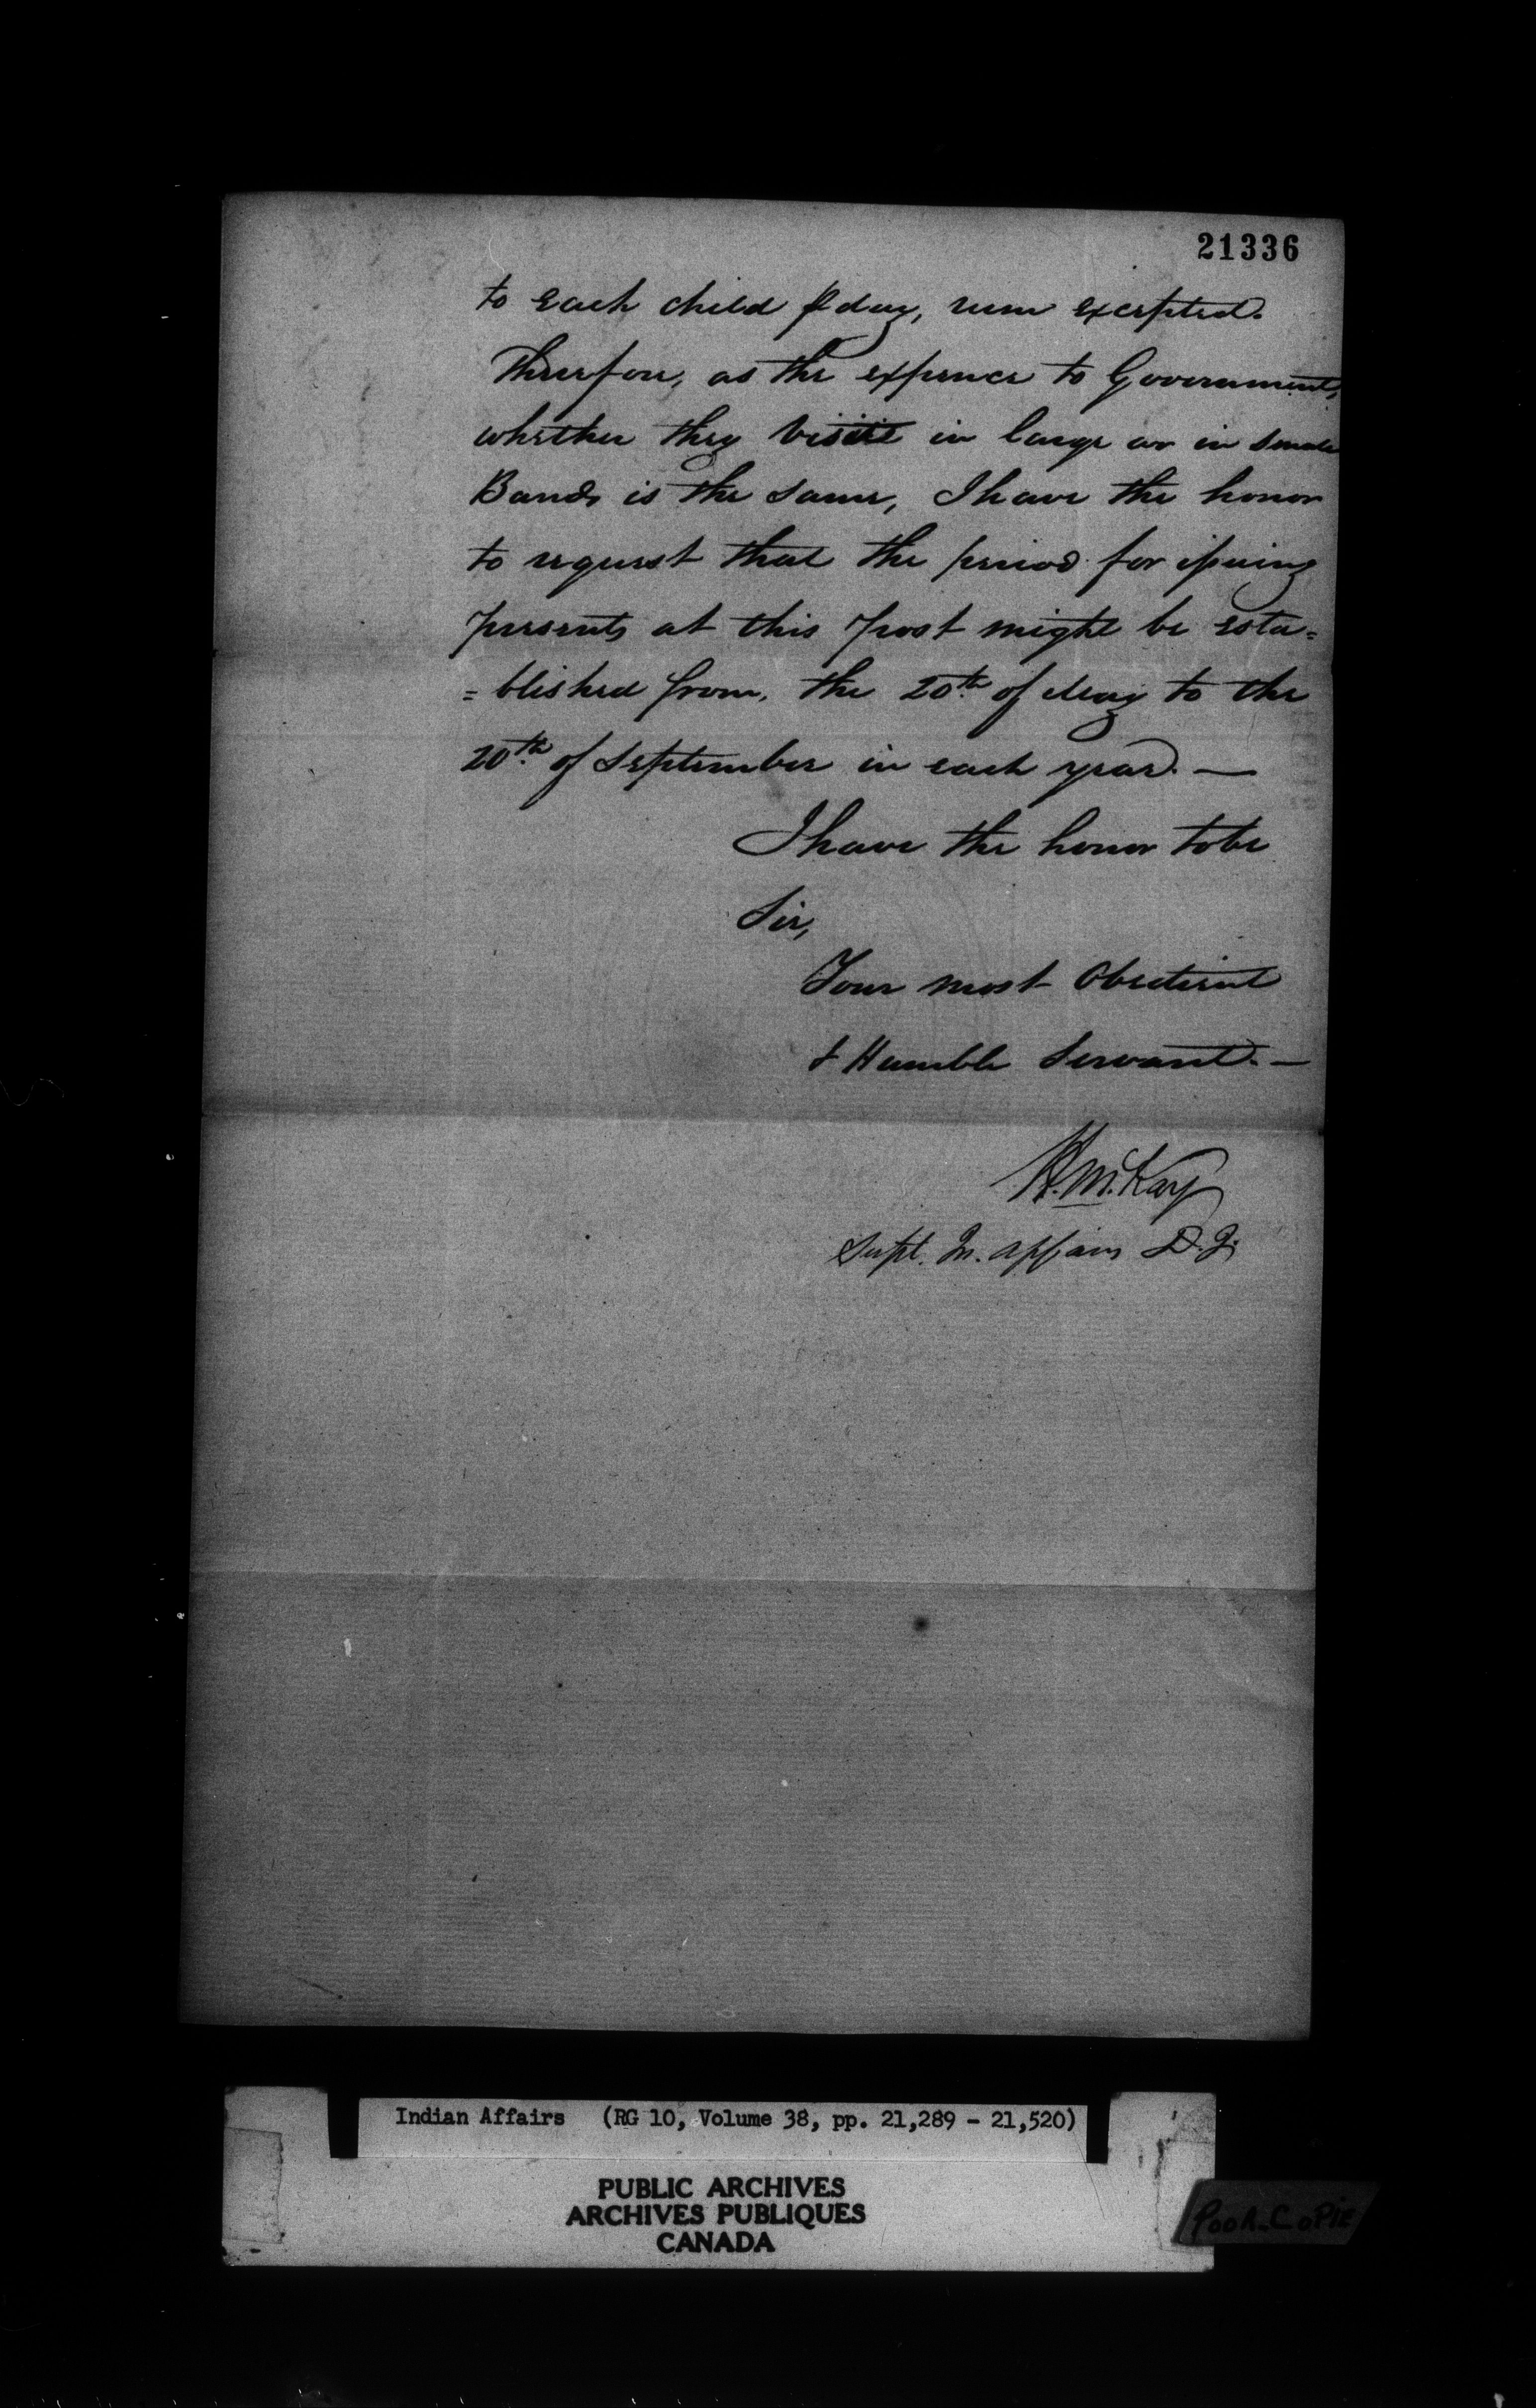 21336
to each child ⅌ day, rum excepted.
Therefore, as the expence to Government,
whether they visit in large or in small
Bands is the same, I have the honor
to request that the period for issuing
presents at this Post might be esta=
=blished from, the 20th of May to the
20th of September in each year. —
I have the honor to be
Sir,
Your most Obedient
& Humble Servant. —
McKay
Supt. In. Affairs D. I.
Indian Affairs (RG 10, Volume 38, pp. 21,289 - 21,520)
PUBLIC ARCHIVES
ARCHIVES PUBLIQUES
CANADA
POOR COPIE